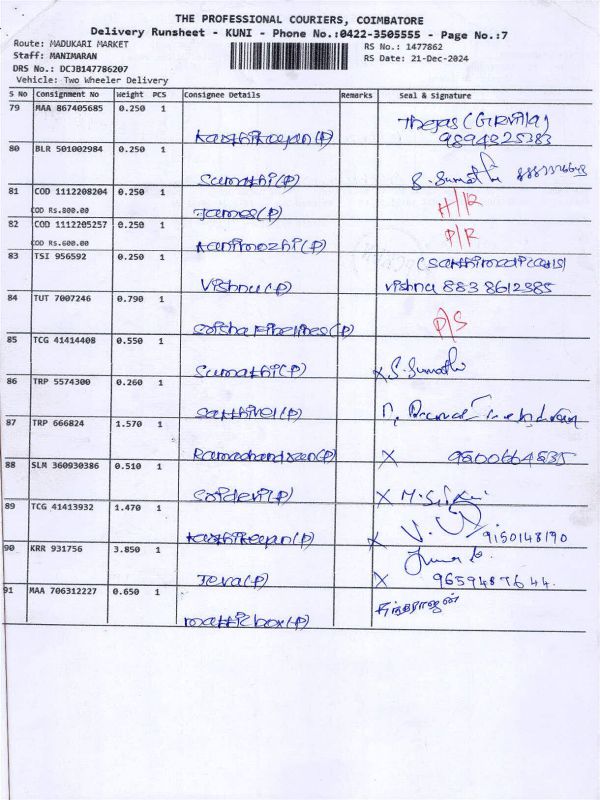 THE PROFESSIONAL COURIERS, COIMBATORE
Delivery Runsheet - KUNI - Phone No.:0422-3505555 - Page No.:7
Route: MADUKARI MARKET RS No.: 1477862
Staff: MANIMARAN RS Date: 21-Dec-2024
DRS No.: DCJB147786207
Vehicle: Two Wheeler Delivery
S No Consignment No Weight PCS Consignee Details Remarks Seal & Signature
79 MAA 867405685 0.250 1
Karthikeyan(P) 9894825383
80 BLR 501002984 0.250 1
Sumathi(P) S. Sumathi
81 COD 1112208204 0.250 1
COD Rs.800.00 James(P)
82 COD 1112205257 0.250 1 P/R
COD Rs.600.00 Kanimozhi(P)
83 TSI 956592 0.250 1
Vishnu(P) Vishnu 883 8612385
84 TUT 7007246 0.790 1
(P) P/S
85 TCG 41414408 0.550 1
Sumathi(P) X S. Sumathi
86 TRP 5574300 0.260 1
Sakthivel(P)
87 TRP 666824 1.570 1
Ramachandran(P) X 9600664835
88 SLM 360930386 0.510 1
Sridevi(P) X
89 TCG 41413932 1.470 1
Karthikeyan(P) X 9150148190
90 KRR 931756 3.850 1
Jeva(P) X 9659487644.
91 MAA 706312227 0.650 1
box(P)